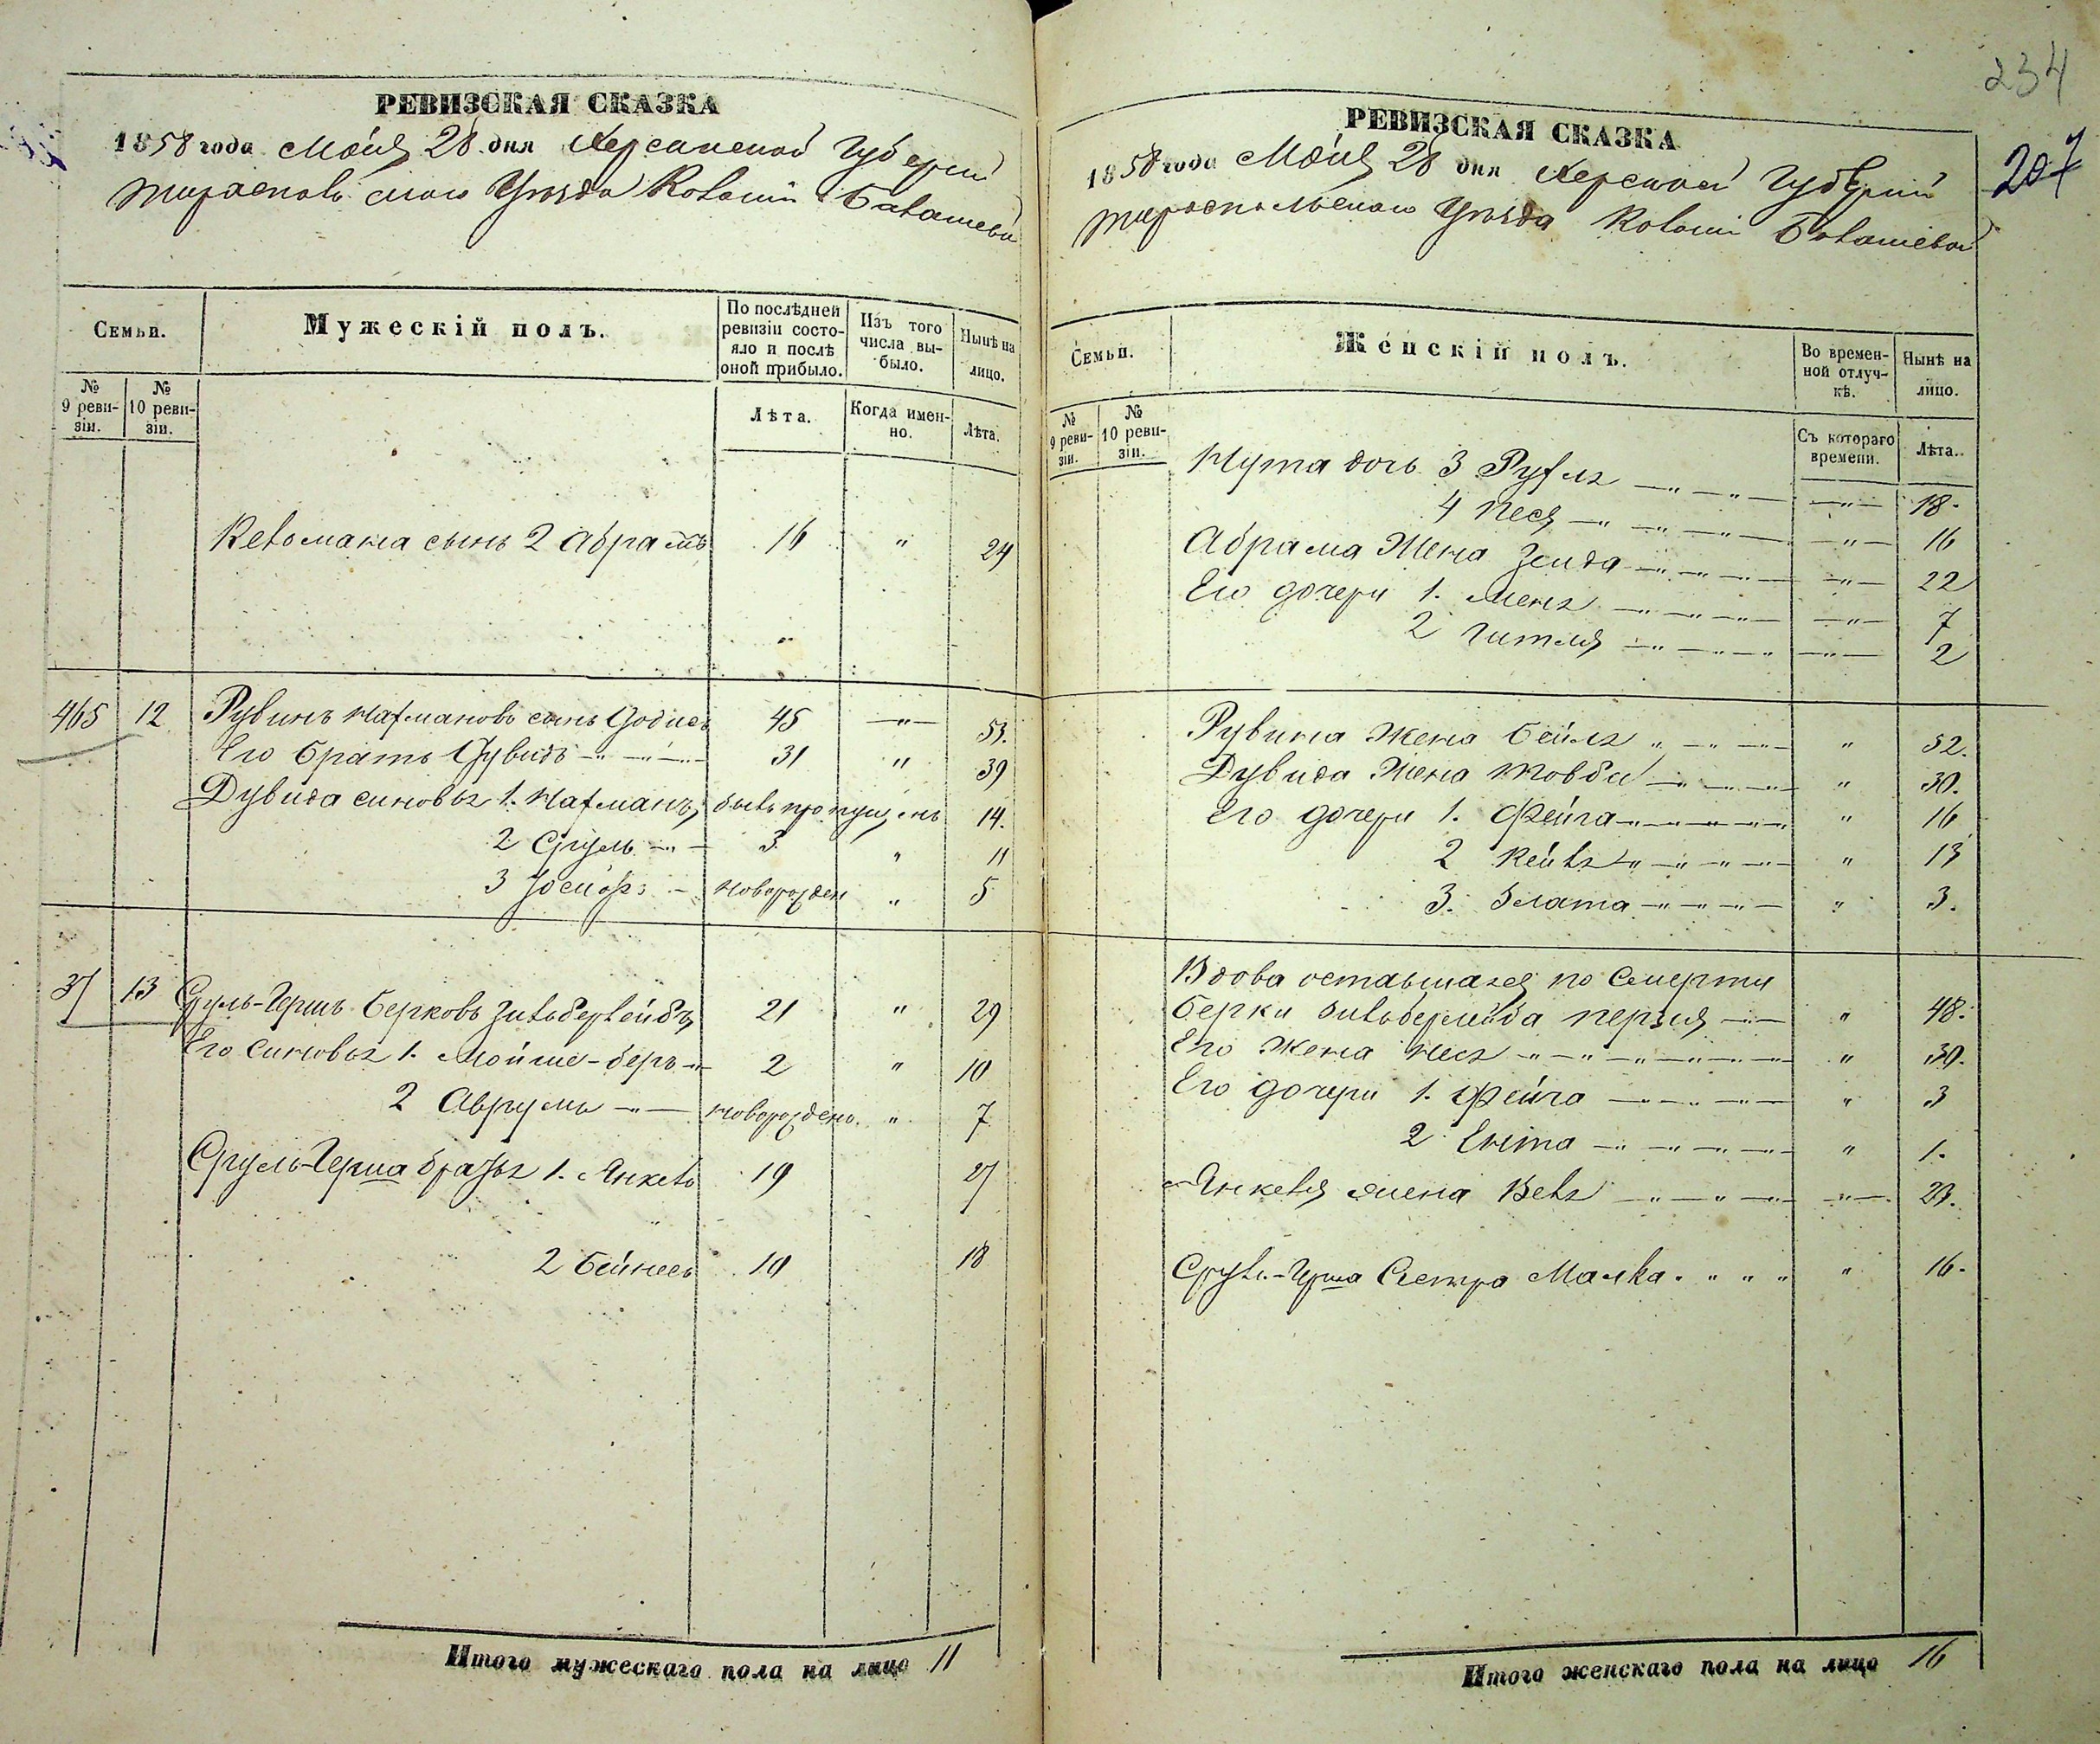 РЕВИЗСКАЯ СКАЗКА
1858 года Маія 28 дня Херсонской Губерніи
Тираспольскаго Уѣзда Колоніи Балашевой
Семьи.
Мужескій полъ.
По послѣдней ревизіи состояло и послѣ оной прибыло.
Изъ того числа выбыло.
Нынѣ на лицо.
№ 9 ревизіи.
№ 10 ревизіи.
Лѣта.
Когда именно.
Лѣта.
сынъ 2 Абрамъ 16 " 24
465 12 Рувинъ Нахмановъ сынъ 45 —"— 53.
Его братъ Дувидъ —"—"— 31 " 39
Дувида сыновья 1. Нахманъ, былъ пропущенъ 14.
2 Сруль —"— 3 " 11
3 Іосифъ — новорожден " 5
37 13 Сруль-Гершъ Берковъ Зильберлейбъ 21 " 29
Его сыновья 1. Мойше-беръ —"— 2 " 10
2 Аврумъ —"— новорожденъ. " 7
Сруль-Герша братья 1. Янкель 19 27
2 Бейнесъ 10 18
Итого мужескаго пола на лицо 11
234
207
РЕВИЗСКАЯ СКАЗКА
1858 года Маія 28 дня Херсонской Губерніи
Тираспольскаго Уѣзда Колоніи Балашевой
Семьи.
Женскій полъ.
Во временной отлучкѣ.
Нынѣ на лицо.
№ 9 ревизіи.
№ 10 ревизіи.
Съ котораго времени.
Лѣта.
Нута дочь 3 Рухля —"—"— —"— 18.
4 Песя —"—"—"— —"— 16
Абрама Жена Зельда —"—"—"— —"— 22
Его дочери 1. —"—"—"— —"— 7
2 Гитля —"—"—" —"— 2
Рувина Жена Бейля "—"—"— " 52.
Дувида Жена Товба —"—"—"— " 30.
Его дочери 1. Фейга —"—"—"—"— " 16
2 Кейля "—"—"—"— " 13
3. Злата —"—"—"— " 3.
Вдова оставшаяся по смерти
Берки Зильберлейба Перля —"— " 48.
Его Жена Неся —"—"—"—"—"— " 30.
Его дочери 1. Фейга —"—"—"— " 3
2 Ента —"—"—"—"— " 1.
Янкеля жена Веля —"—"—"— —"—. 23.
Сруль-Герша Сестра Малка. " " " " 16.
Итого женскаго пола на лицо 16